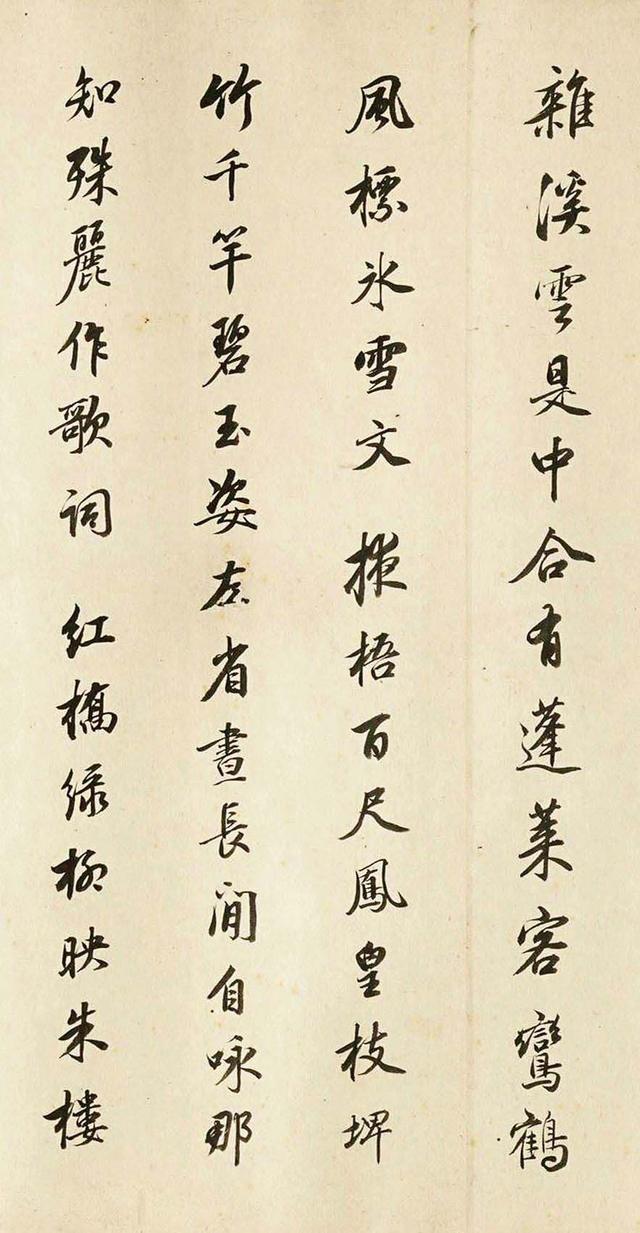 雜溪雲是中合有蓬萊客鸞鶴
風標氷雪文 掖梧百尺鳳皇枝埤
竹千竿碧玉姿左省晝長閒自咏那
知殊麗作歌詞 紅橋緑柳映朱樓